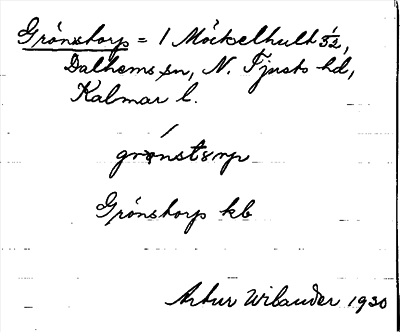 Grönstorp = 1 Möckelhult 3 1/2,
Dalhems sn, N. Tjusts hd,
Kalmar l.
Grönstorp kb
Artur Wilander 1930